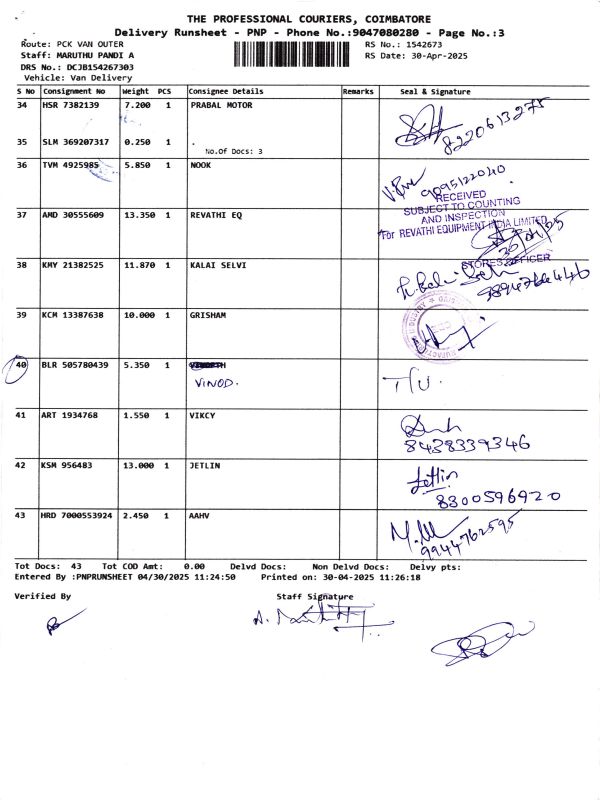 THE PROFESSIONAL COURIERS, COIMBATORE
Delivery Runsheet - PNP - Phone No.:9047080280 - Page No.:3
Route: PCK VAN OUTER RS No.: 1542673
Staff: MARUTHU PANDI A RS Date: 30-Apr-2025
DRS No.: DCJB154267303
Vehicle: Van Delivery
S No Consignment No Weight PCS Consignee Details Remarks Seal & Signature
34 HSR 7382139 7.200 1 PRABAL MOTOR
8220613275
35 SLM 369207317 0.250 1 .
No.Of Docs: 3
36 TVM 4925985 5.850 1 NOOK
9095122040
RECEIVED
SUBJECT TO COUNTING
AND INSPECTION
For REVATHI EQUIPMENT INDIA LIMITED
37 AMD 30555609 13.350 1 REVATHI EQ
30/04/25
STORES OFFICER
38 KMY 21382525 11.870 1 KALAI SELVI
39 KCM 13387638 10.000 1 GRISHAM
40 BLR 505780439 5.350 1
VINOD. T/U.
41 ART 1934768 1.550 1 VIKCY
8438339346
42 KSM 956483 13.000 1 JETLIN
Jetlin
8300596920
43 HRD 7000553924 2.450 1 AAHV
9944762595
Tot Docs: 43 Tot COD Amt: 0.00 Delvd Docs: Non Delvd Docs: Delvy pts:
Entered By :PNPRUNSHEET 04/30/2025 11:24:50 Printed on: 30-04-2025 11:26:18
Verified By Staff Signature